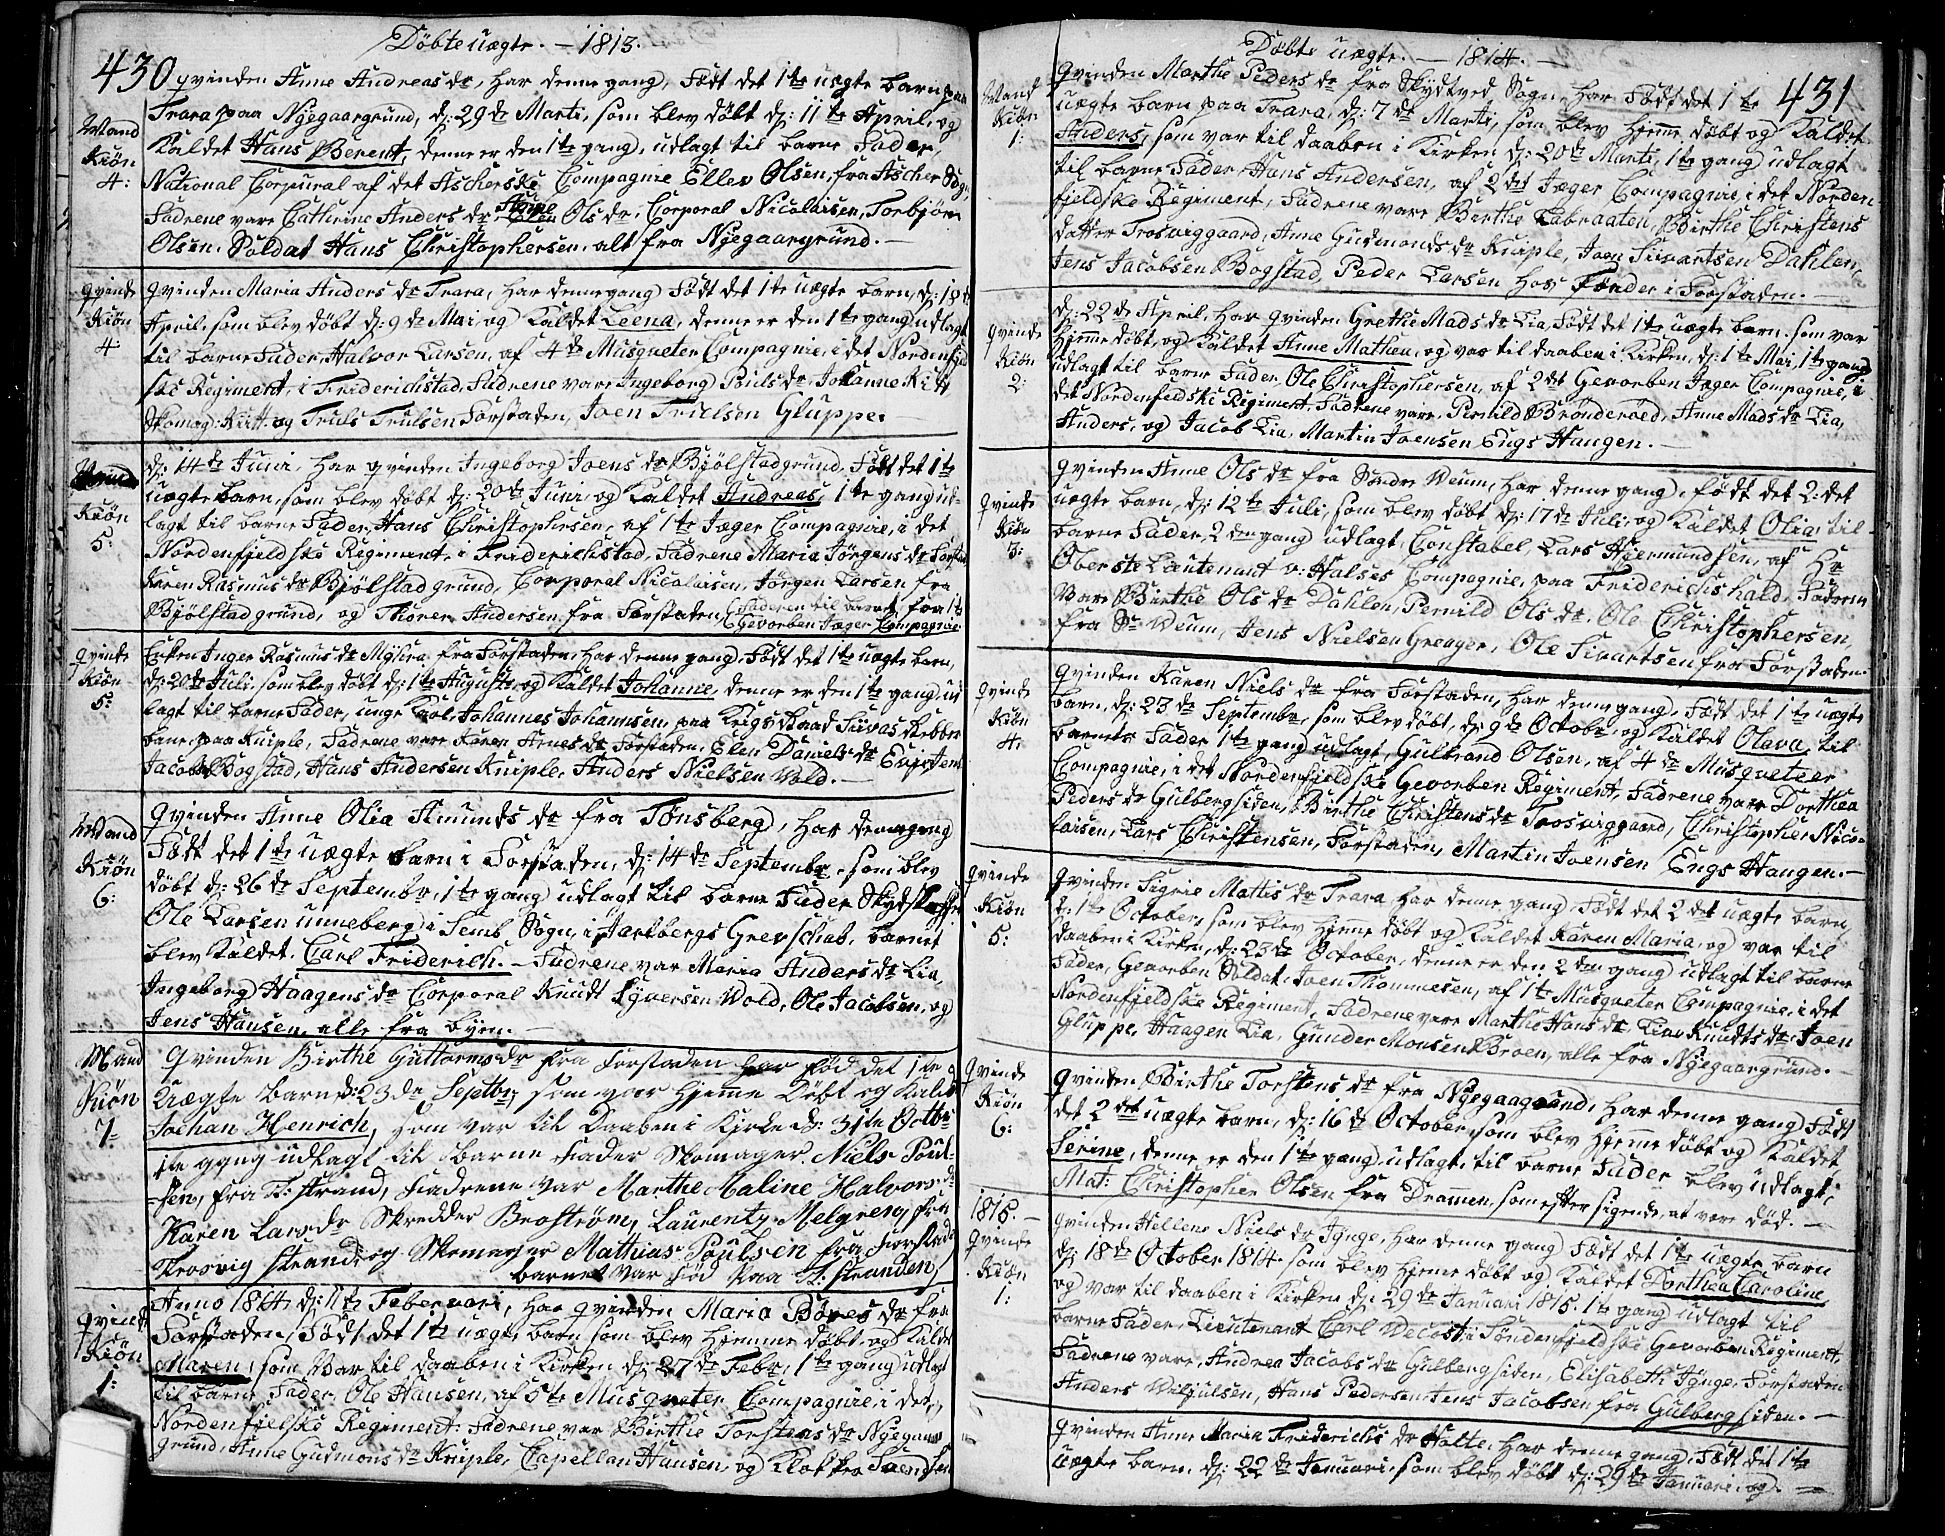 Døbte uægte. – 1813.
430
qvinden Anne Andreas dr, har denne gang, Født det 1te uægte barn paa
Trara paa Nyegaargrund, d: 29de Marti, som blev døbt d: 11te April, og
Kaldet Hans Berent, denne er den 1te gang, udlagt til barne Fader,
National Corpural af det Ascherske Compagnie Ellev Olsen, fra Ascher Sogn,
Fadrene vare Cathrine Anders dr, Anne Ols dr, Corporal Nicolaisen, Torbjørn
Olsen, Soldat Hans Christophersen, alt fra Nyegaargrund. –
Mand
Kiøn
4:
qvinden Maria Anders dr Trara, har denne gang Født det 1te uægte barn, d: 18de
April, som blev døbt d: 9de Mai, og Kaldet Leena, denne er den 1te gang udlagt
til barne Fader, Halvor Larsen, af 4de Musqueter Compagnie, i det Nordenfjeld
ske Regiment, i Friderichstad, Fadrene vare Ingeborg Pouls dr, Johanne Kitt
Skomag: Kitt. og Truls Trulsen Forstaden, Joen Truelsen Gluppe.
qvinde
Kiøn
4
d: 14de Juni, har qvinden Ingeborg Joens dr Bjølstadgrund, Født det 1te
uægte barn, som blev døbt d: 20de Juni, og Kaldet Andreas, 1te gang ud-
lagt til barne Fader, Hans Christophersen, af 1te Jæger Compagnie, i det
Nordenfjeldske Regiment, i Friderichstad, Fadrene Maria Jørgens dr Forstad
Karen Rasmus dr Bjølstadgrund, Corporal Nicolaisen, Jørgen Larsen fra
Bjølstadgrund, og Thorer Andersen fra Forstaden, Faderen til barnet, fra 1te
Gevorben Jæger Compagnie.
Kiøn
5:
Enken Inger Rasmus dr Mysira, fra Forstaden, har denne gang Født det 1te uægte barn,
d: 20de Juli, som blev døbt d: 1te Augusti, og Kaldet Johanne, denne er den 1te gang ud
lagt til barne Fader, unge Karl, Johannes Johannsen, paa Krigs Raad Sivas Robber
bane, paa Kniple, Fadrene vare Karen Arnes dr Forstaden, Elen Daniels dr Enge Jens
Jacobs Bogstad, Hans Andersen Kniple, Anders Nielsen Vold. –
qvinde
Kiøn
5:
qvinden Anne Olia Amunds dr fra Tønsberg, har denne gang
Født det 1te uægte barn i Forstaden, d: 14de Septembr, som blev
døbt d: 26de Septembr, 1te gang udlagt til barne Fader Skydskaffer
Ole Larsen unneberg, i Sems Sogn, i Jarlbergs Grevschab, barnet
blev Kaldet. Carl Friderich. – Fadrene var Maria Anders dr Lia,
Ingeborg Haagens dr Corporal Knudt Syversen Wold, Ole Jacobsen, og
Jens Hansen, alle fra byen. –
Mand
Kiøn
6:
Qvinden Birthe Guttorms dr fra Forstaden har fød det 1te
Uægte barn d: 23de Septbr, som var hjeme Døbt og Kaldt
Johan Henrich, som var til Daaben i Kirken d: 31te Octbr
1te gang udlagt til barne Fader Skomager. Niels Poul-
-sen, fra T: strand, Fadrene var Marthe Maline Halvors d:
Karen Lars dr Skredder Brostrøm, Laurentz Melgreen fra
Trosvig strand, og Skomager Mathias Poulsen fra Forstad
barnet var fød paa T: stranden,
Mand
Kiøn
7=
Anno 1814 d: 11te Februari, har qvinden Maria Børes dr fra
Forstaden, Født det 1te uægte barn som blev hjemme døbt og Kaldet
Maren, som var til daaben i Kirken d: 27de Febr, 1te gang udlagt
til barne Fader, Ole Hansen, af 5te Musqueter Compagnie, i det
Nordenfjelske Regement: Fadrene var Birthe Torstens dr Nyegaar
grund, Anne Gudmons dr Kniple, Capellan Hansen, og Klokker Svendsen
qvinde
Kiøn
1:
Døbte uægte. – 1814. –
431
Mand
Kiøn
1:
qvinden Marthe Peders dr fra Skydtved Sogn, har Født det 1te
uægte barn paa Trara, d: 7de Marti, som blev hjeme døbt og Kaldet
Anders, som var til daaben i Kirken d: 20de Marti, 1te gang udlagt
til barne Fader Hans Andersen, af 2det Jæger Compagnie i det Norden-
fjeldske Regiment, Fadrene vare Birthe Labraaten, Birthe Christens
datter Trosviggaard, Anne Gudmonds dr Kniple, Joen Sivartsen Dahlen,
Jens Jacobsen Bogstad, Peder Larsen hos Tønder i Forstaden. –
qvinde
Kiøn
2:
d: 22de April, har qvinden Grethe Mads dr Lia, Født det 1te uægte barn, som var
hjeme døbt, og Kaldet Anne Mathea, og var til daaben i Kirken, d: 1te Mai, 1te gang
udlagt til barne Fader Ole Christophersen, af 2det Gevorben Jæger Compagnie, i
det Nordenfeldske Regiment, Fadrene vare, Pernild Brønderød, Anne Mads dr Lia,
Anders, og Jacob Lia, Martin Joensen Engs Haugen. –
qvinde
Kiøn
3:
qvinden Anne Ols dr fra Søndre Weum, har denne gang, født det 2:det
uægte barn, d: 12te Juli, som blev døbt d: 17de Juli, og Kaldet Olia, til
barne Fader, 2den gang udlagt, Constabel, Lars Hiermundsen, af Hr
Oberste Lieutenant v: Halses Compagnie, paa Friderichshald, Fadrene
Vare Birthe Ols dr Dahlen, Pernild Ols dr, Ole Christophersen,
fra Sr Weum, Jens Nielsen Greager, Ole Sivartsen fra Forstaden.
qvinde
Kiøn
4.
qvinden Karen Niels dr fra Forstaden, har denne gang, Født det 1te uægte
barn, d: 23de Septembr, som blev døbt, d: 9de Octobr, og Kaldet Olava, til
barnets Fader 1te gang udlagt, Gulbrand Olsen, af 4de Musqueteer
Compagnie, i det Nordenfjeldske Gevorben Regiment, Fadrene vare Dorthea
Peders dr Gulbergsiden, Birthe Christens dr Trosviggaard, Christopher Nico-
laisen, Lars Christensen, Forstaden, Martin Joensen Engs Haugen. –
qvinde
Kiøn
5:
qvinden Sigrie Mattis dr Trara, har denne gang, Født det 2det uægte barn,
d: 1te October, som blev hjeme døbt og Kaldet Karen Maria, og var til
daaben i Kirken, d: 23de October, denne er den 2den gang udlagt til barne
Fader, Gevorben Soldat, Joen Thommesen, af 1te Musqueter Compagnie, i det
Nordenfjeldske Regiment, Fadrene vare Marthe Hans dr Lia, Knudts dr, Joen
Gluppe, Haagen Lia, Gunder Monsen Broen, alle fra Nyegaargrund. –
qvinde
Kiøn
6:
qvinden Birthe Torstens dr fra Nyegaagrund, har denne gang Født
det 2det uægte barn, d: 16de October, som blev hjeme døbt og Kaldet
Serine, denne er den 1te gang udlagt, til barne Fader blev udlagt,
Mat: Christopher Olsen fra Drammen, som efter sigende, at være død. –
1815. –
qvinde
Kiøn
1:
qvinden Hellene Niels dr Tynge, har denne gang Født det 1te uægte barn
d: 18de October 1814 som blev hjeme døbt og Kaldet Dorthea Caroline,
og var til daaben i Kirken d: 29de Januari 1815. 1te gang udlagt til
barne Fader, Lieutenant Carl Wecost i Søndenfjeldske Gevorben Regiment,
Fadrene vare, Andrea Jacobs dr Gulbergsiden, Elisabeth Tynge, Forstaden
Anders Wiljulsen, Hans Pedersen, Jens Jacobsen fra Gulbergsiden. –
qvinden Anne Maria Friderichs dr Holte, har denne gang, Født det 1te
uægte barn, d: 22de Januari, som blev døbt d: 29de Januari, og –